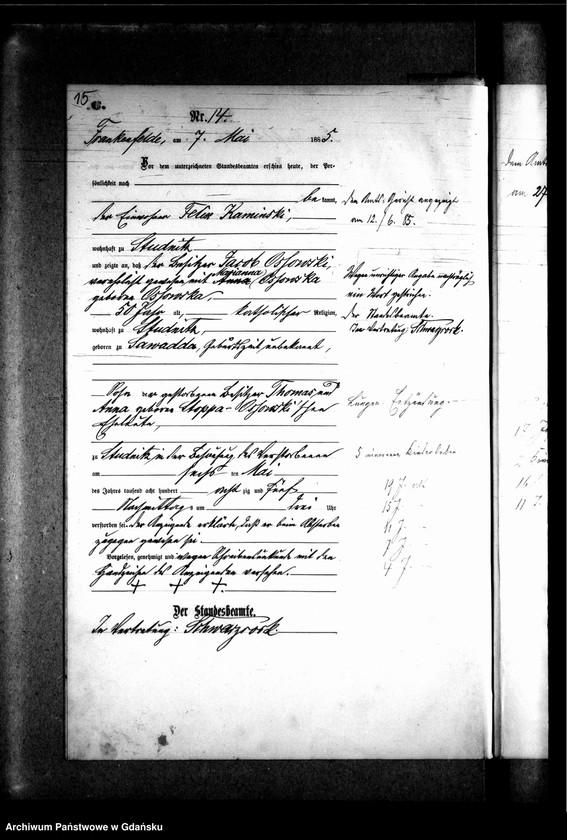 15.
C.
Nr. 14.
Frankenfelde, am 7. Mai 1885.
Vor dem unterzeichneten Standesbeamten erschien heute, der Per-
sönlichkeit nach
bekannt,
der Einwohner Felix Kaminski,
wohnhaft zu Studnitz
und zeigte an, daß der Besitzer Jacob Ossowski,
verehelicht gewesen mit Anna, Ossowska
Marianna
geborene Ossowska,
50 Jahr alt, katholischer Religion,
wohnhaft zu Studnitz,
geboren zu Zawadda, Geburtszeit unbekannt,
Sohn der gestorbenen Besitzer Thomas und
Anna geborene Stoppa-Ossowski'schen
Eheleute,
zu Studnitz, in der Behausung des Verstorbenen
am sechsten Mai
des Jahres tausend acht hundert achtzig und fünf
Nachmittags um drei Uhr
verstorben sei. der Anzeigende erklärte, daß er beim Absterben
zugegen gewesen sei.
Vorgelesen, genehmigt und wegen Schreibensunkunde mit den
Handzeichen des Anzeigenden versehen.
+ + +
Der Standesbeamte.
In Vertretung: Schwarzrock
Dem Amts-Gericht angezeigt
am 12./6. 85.
Wegen unrichtiger Angabe nachträglich
ein Wort gestrichen.
Der Standesbeamte.
In Vertretung: Schwarzrock.
Lungen-Entzündung.
5 Kinder
19 J. alt
15 J.
J.
7 J.
4 J.
Dem Amts
am 27
Archiwum Państwowe w Gdańsku